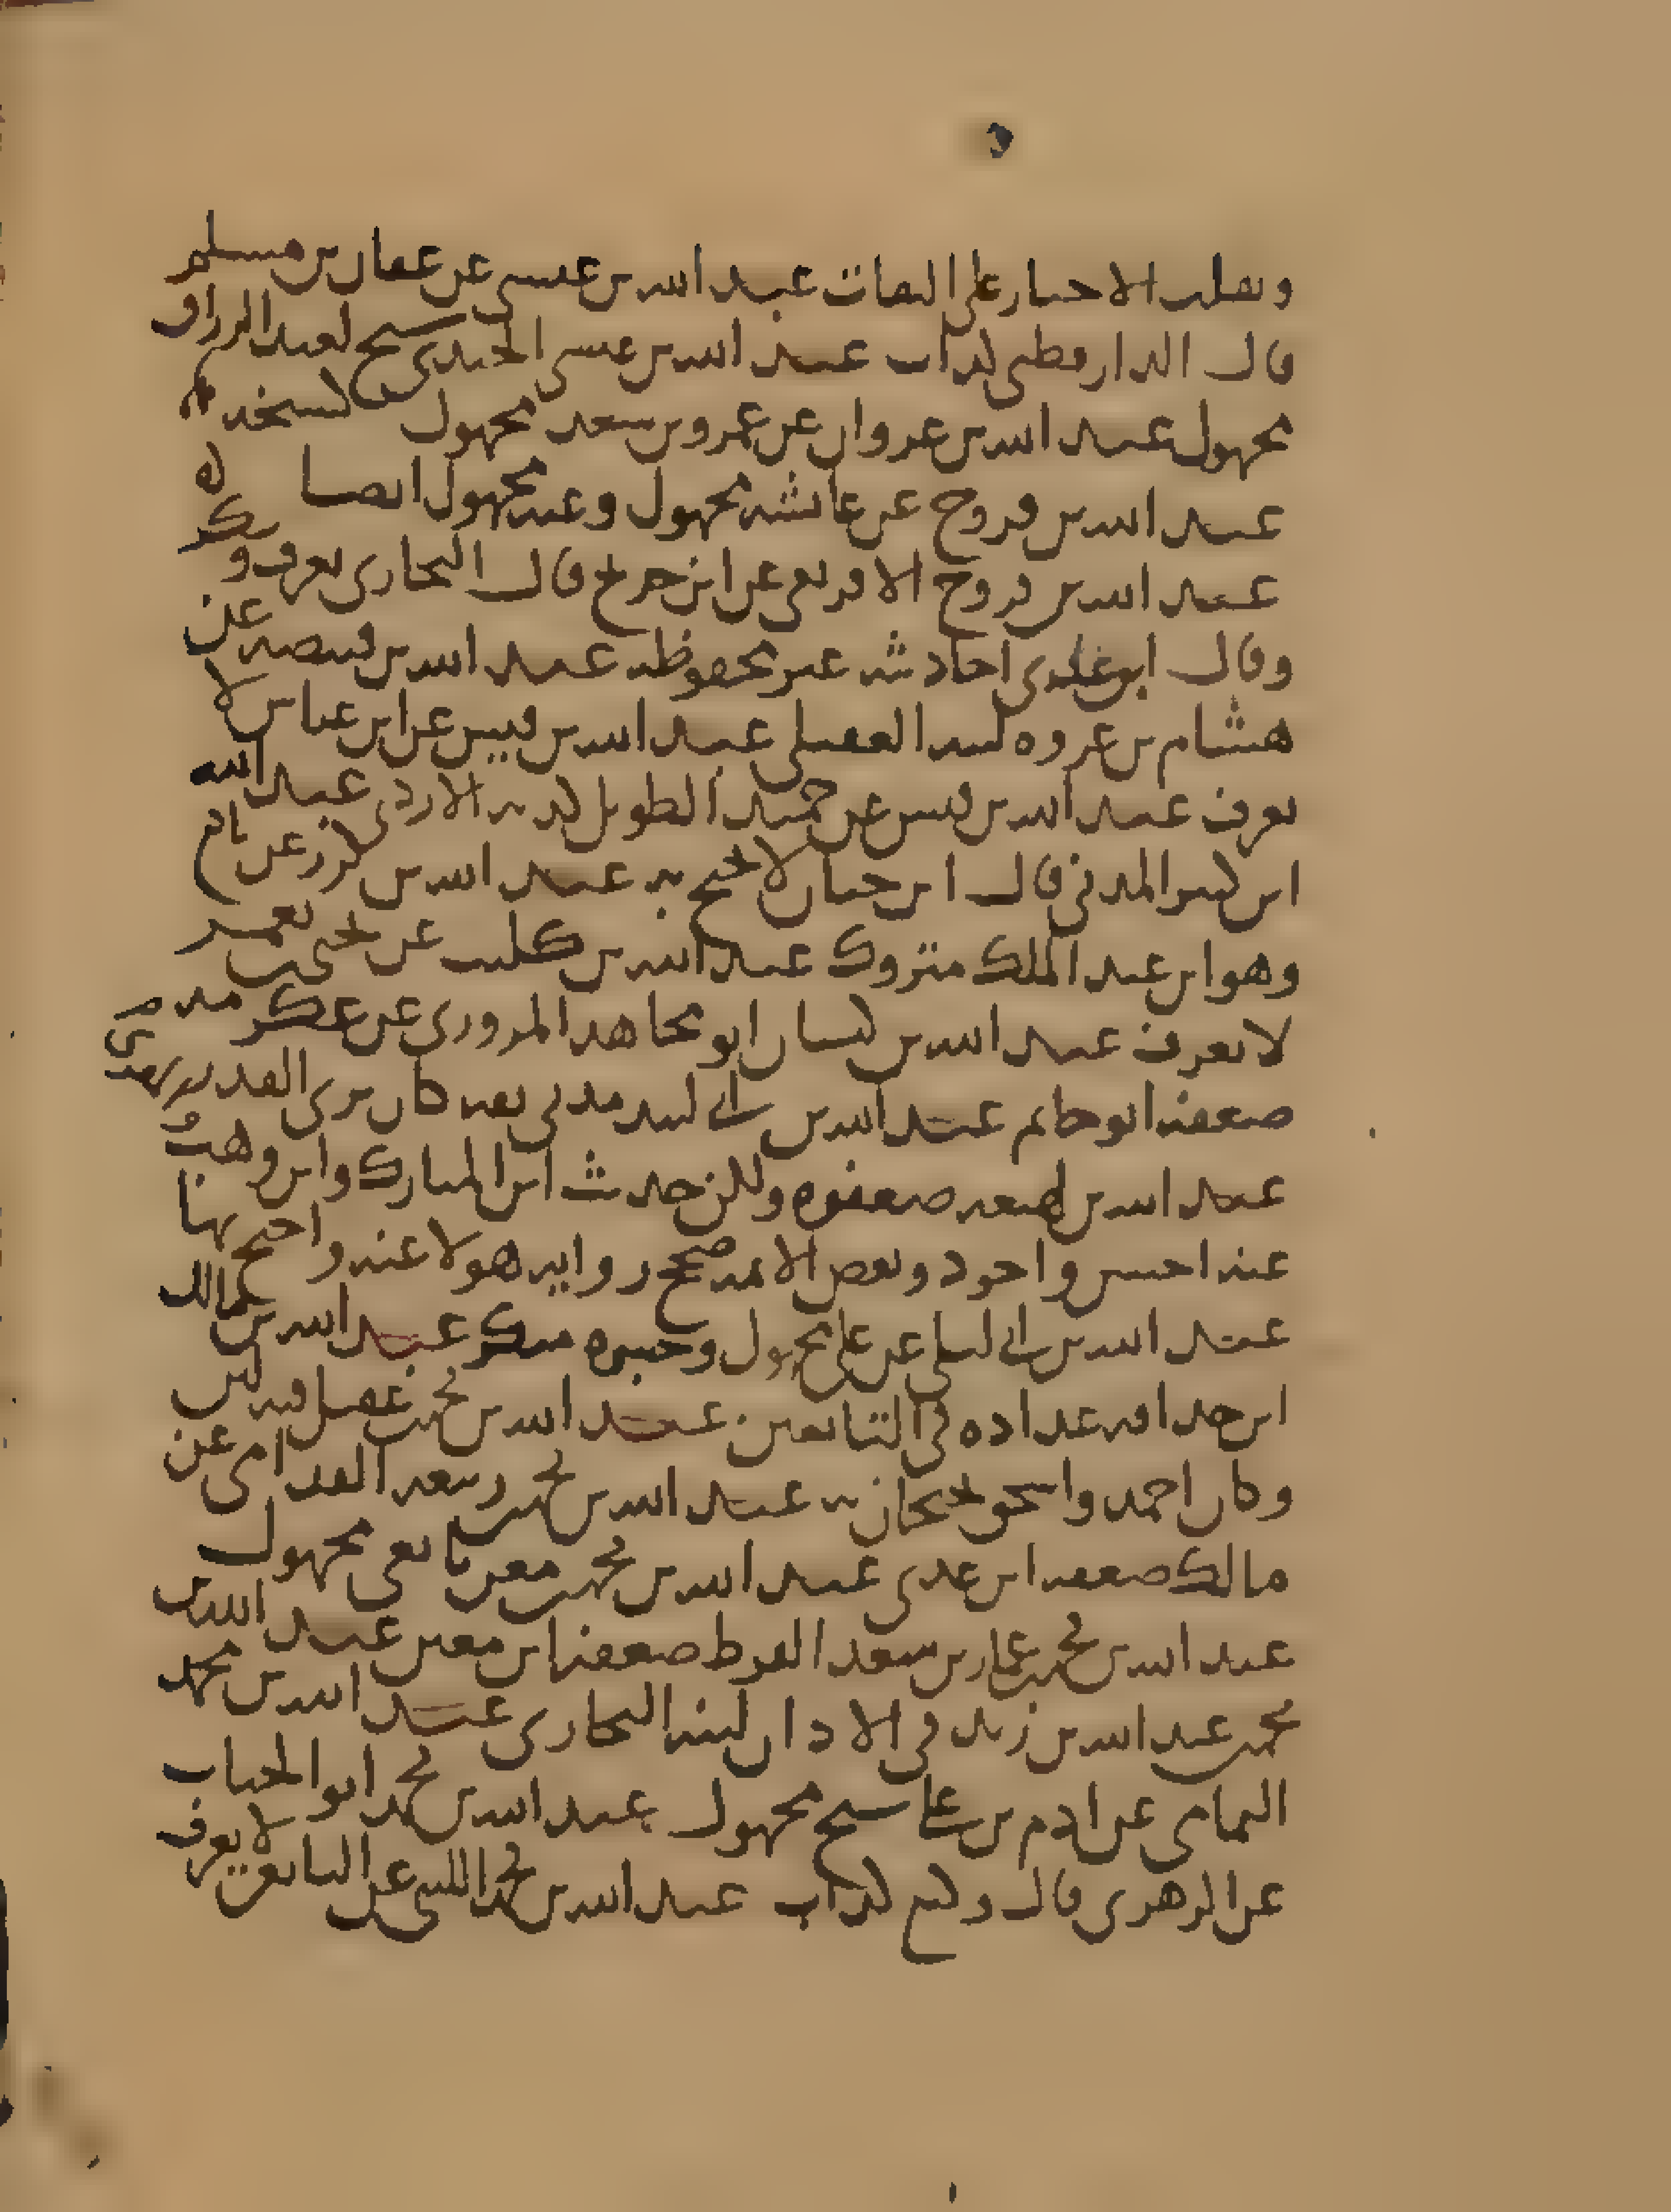 ويقلب الاخبار على الثقات عبد الله بن عيسى عن عفان بن مسلم
قال الدارقطني كذاب عبد الله بن عيسى الجندي شيخ لعبد الرزاق
مجهول عبد الله بن عروان عن عمرو بن سعد مجهول كشيخه
عبد الله بن فروخ عن عائشة مجهول وعنه مجهول ايضا
عبد الله بن فروخ الافريقي عن ابن جريج قال البخاري يعرف وينكر
وقال ابن عدي احاديثه غير محفوظة عبد الله بن قبيصة عن
هشام بن عروة لينه العقيلي عبد الله بن قيس عن ابن عباس لا
يعرف عبد الله بن قيس عن حميد الطويل كذبه الازدي عبد الله
ابن كثير المدني قال ابن حبان لا يحتج به عبد الله بن كرز عن نافع
وهو ابن عبد الملك متروك عبد الله بن كليب عن يحيى بن يعمر
لا يعرف عبد الله بن كيسان ابو مجاهد المروزي عن عكرمة
ضعفه ابو حاتم عبد الله بن ابي لبيد مدني ثقة كان يرى القدر
عبد الله بن لهيعة ضعفوه ولكن حديث ابن المبارك وابن وهب
عنه احسن واجود وبعض الائمة صحح رواية هولا عنه واحتج بها
عبد الله بن ابي ليلى عن علي مجهول وخبره منكر عبد الله بن مالك
ابن حذافة عداده في التابعين عبد الله بن محمد بن عقيل فيه لين
وكان احمد واسحق يحتجان به عبد الله بن محمد بن ربيعة القدامي عن
مالك ضعفه ابن عدي عبد الله بن محمد بن معن تابعي مجهول
عبد الله بن محمد بن عمار بن سعد القرظ ضعفه ابن معين عبد الله بن
محمد بن عبد الله بن زيد في الاذان لينه البخاري عبد الله بن محمد
اليمامي عن ادم بن علي شيخ مجهول عبد الله بن محمد ابو الحباب
عن الزهري قال وكيع كذاب عبد الله بن محمد الليثي عن التابعين لا يعرف